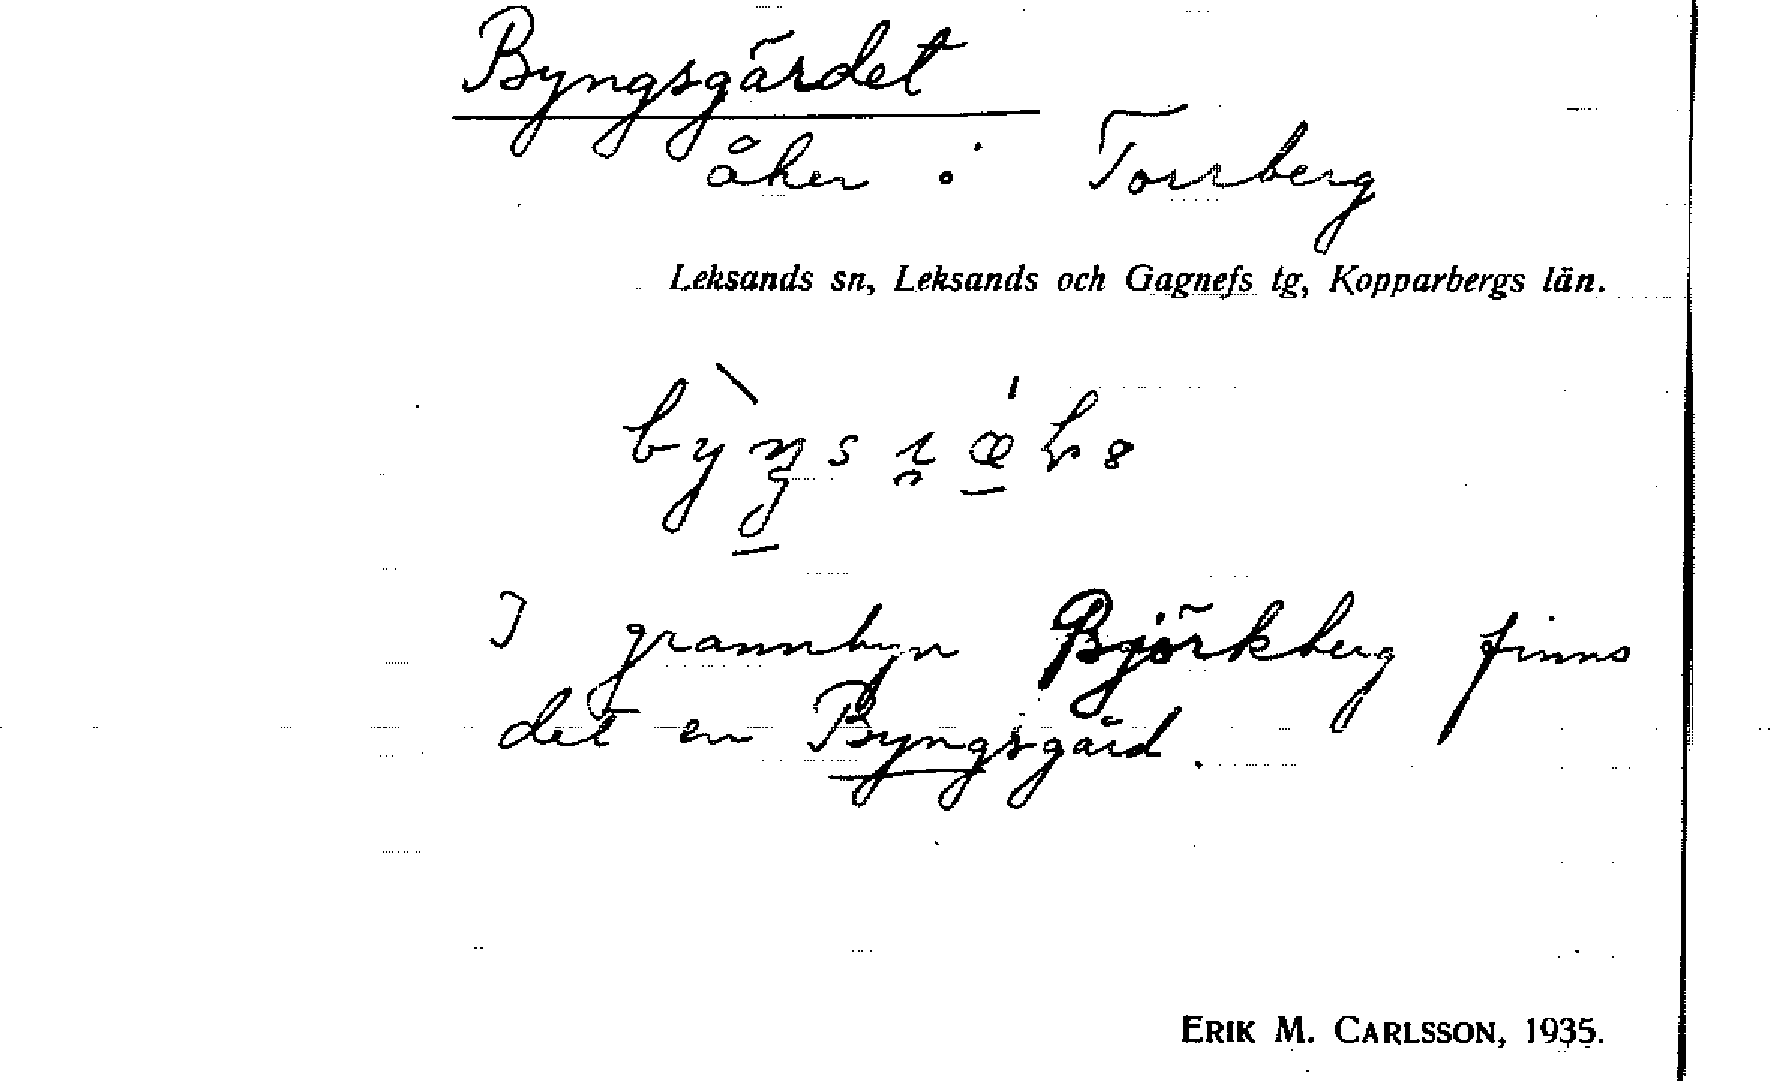 Byngsgärdet
åker i Torrberg
Leksands sn, Leksands och Gagnefs tg, Kopparbergs län.
I grannbyn Björkberg finns
det en Byngsgärd.
ERIK M. CARLSSON, 1935.